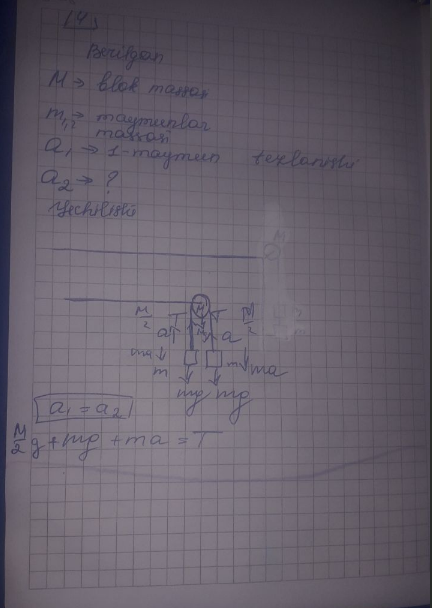 (4)
Berilgan
M → blok massasi
m₁,₂ → maymunlar
massasi
a₁ → 1-maymun tezlanishi
a₂ → ?
Yechilishi
M/2 T M T M/2
a a
ma m m ma
mg mg
a₁ = a₂
M/2 g + mg + ma = T